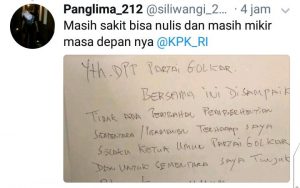 Panglima_212 @siliwangi_2... · 4 jam
Masih sakit bisa nulis dan masih mikir
masa depan nya @KPK_RI
Yth. DPP PARTAI GOLKAR.
BERSAMA INI DISAMPAIK
TIDAK ADA
SEMENTARA / TERHADAP SAYA
SELAKU KETUA UMUM PARTAI GOLKAR
DAN UNTUK SEMENTARA SAYA TUNJUK